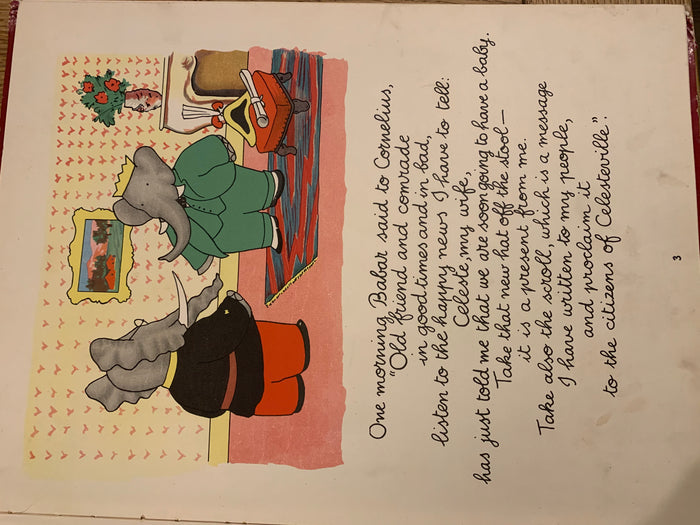 One morning Babar said to Cornelius,
"Old friend and comrade
in good times and in bad,
listen to the happy news I have to tell:
Celeste, my wife,
has just told me that we are soon going to have a baby.
Take that new hat off the stool—
it is a present from me.
Take also the scroll, which is a message
I have written to my people,
and proclaim it
to the citizens of Celesteville".
3